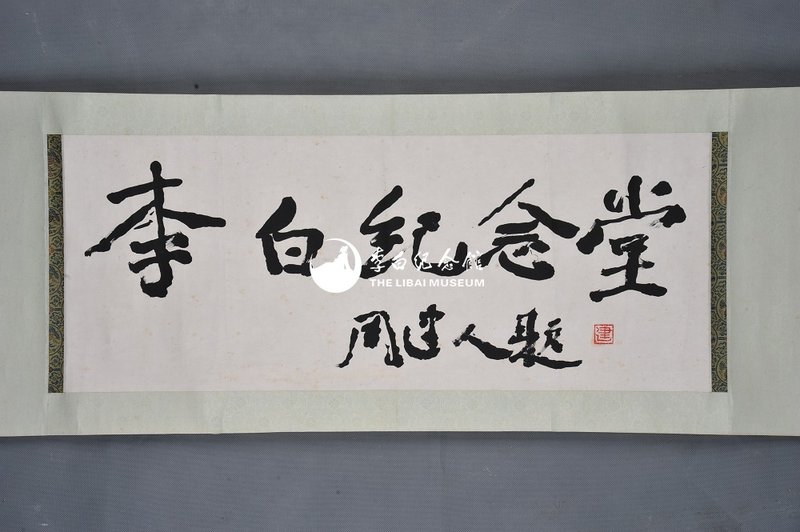 李白纪念堂
周建人题
建
李白纪念馆
THE LIBAI MUSEUM